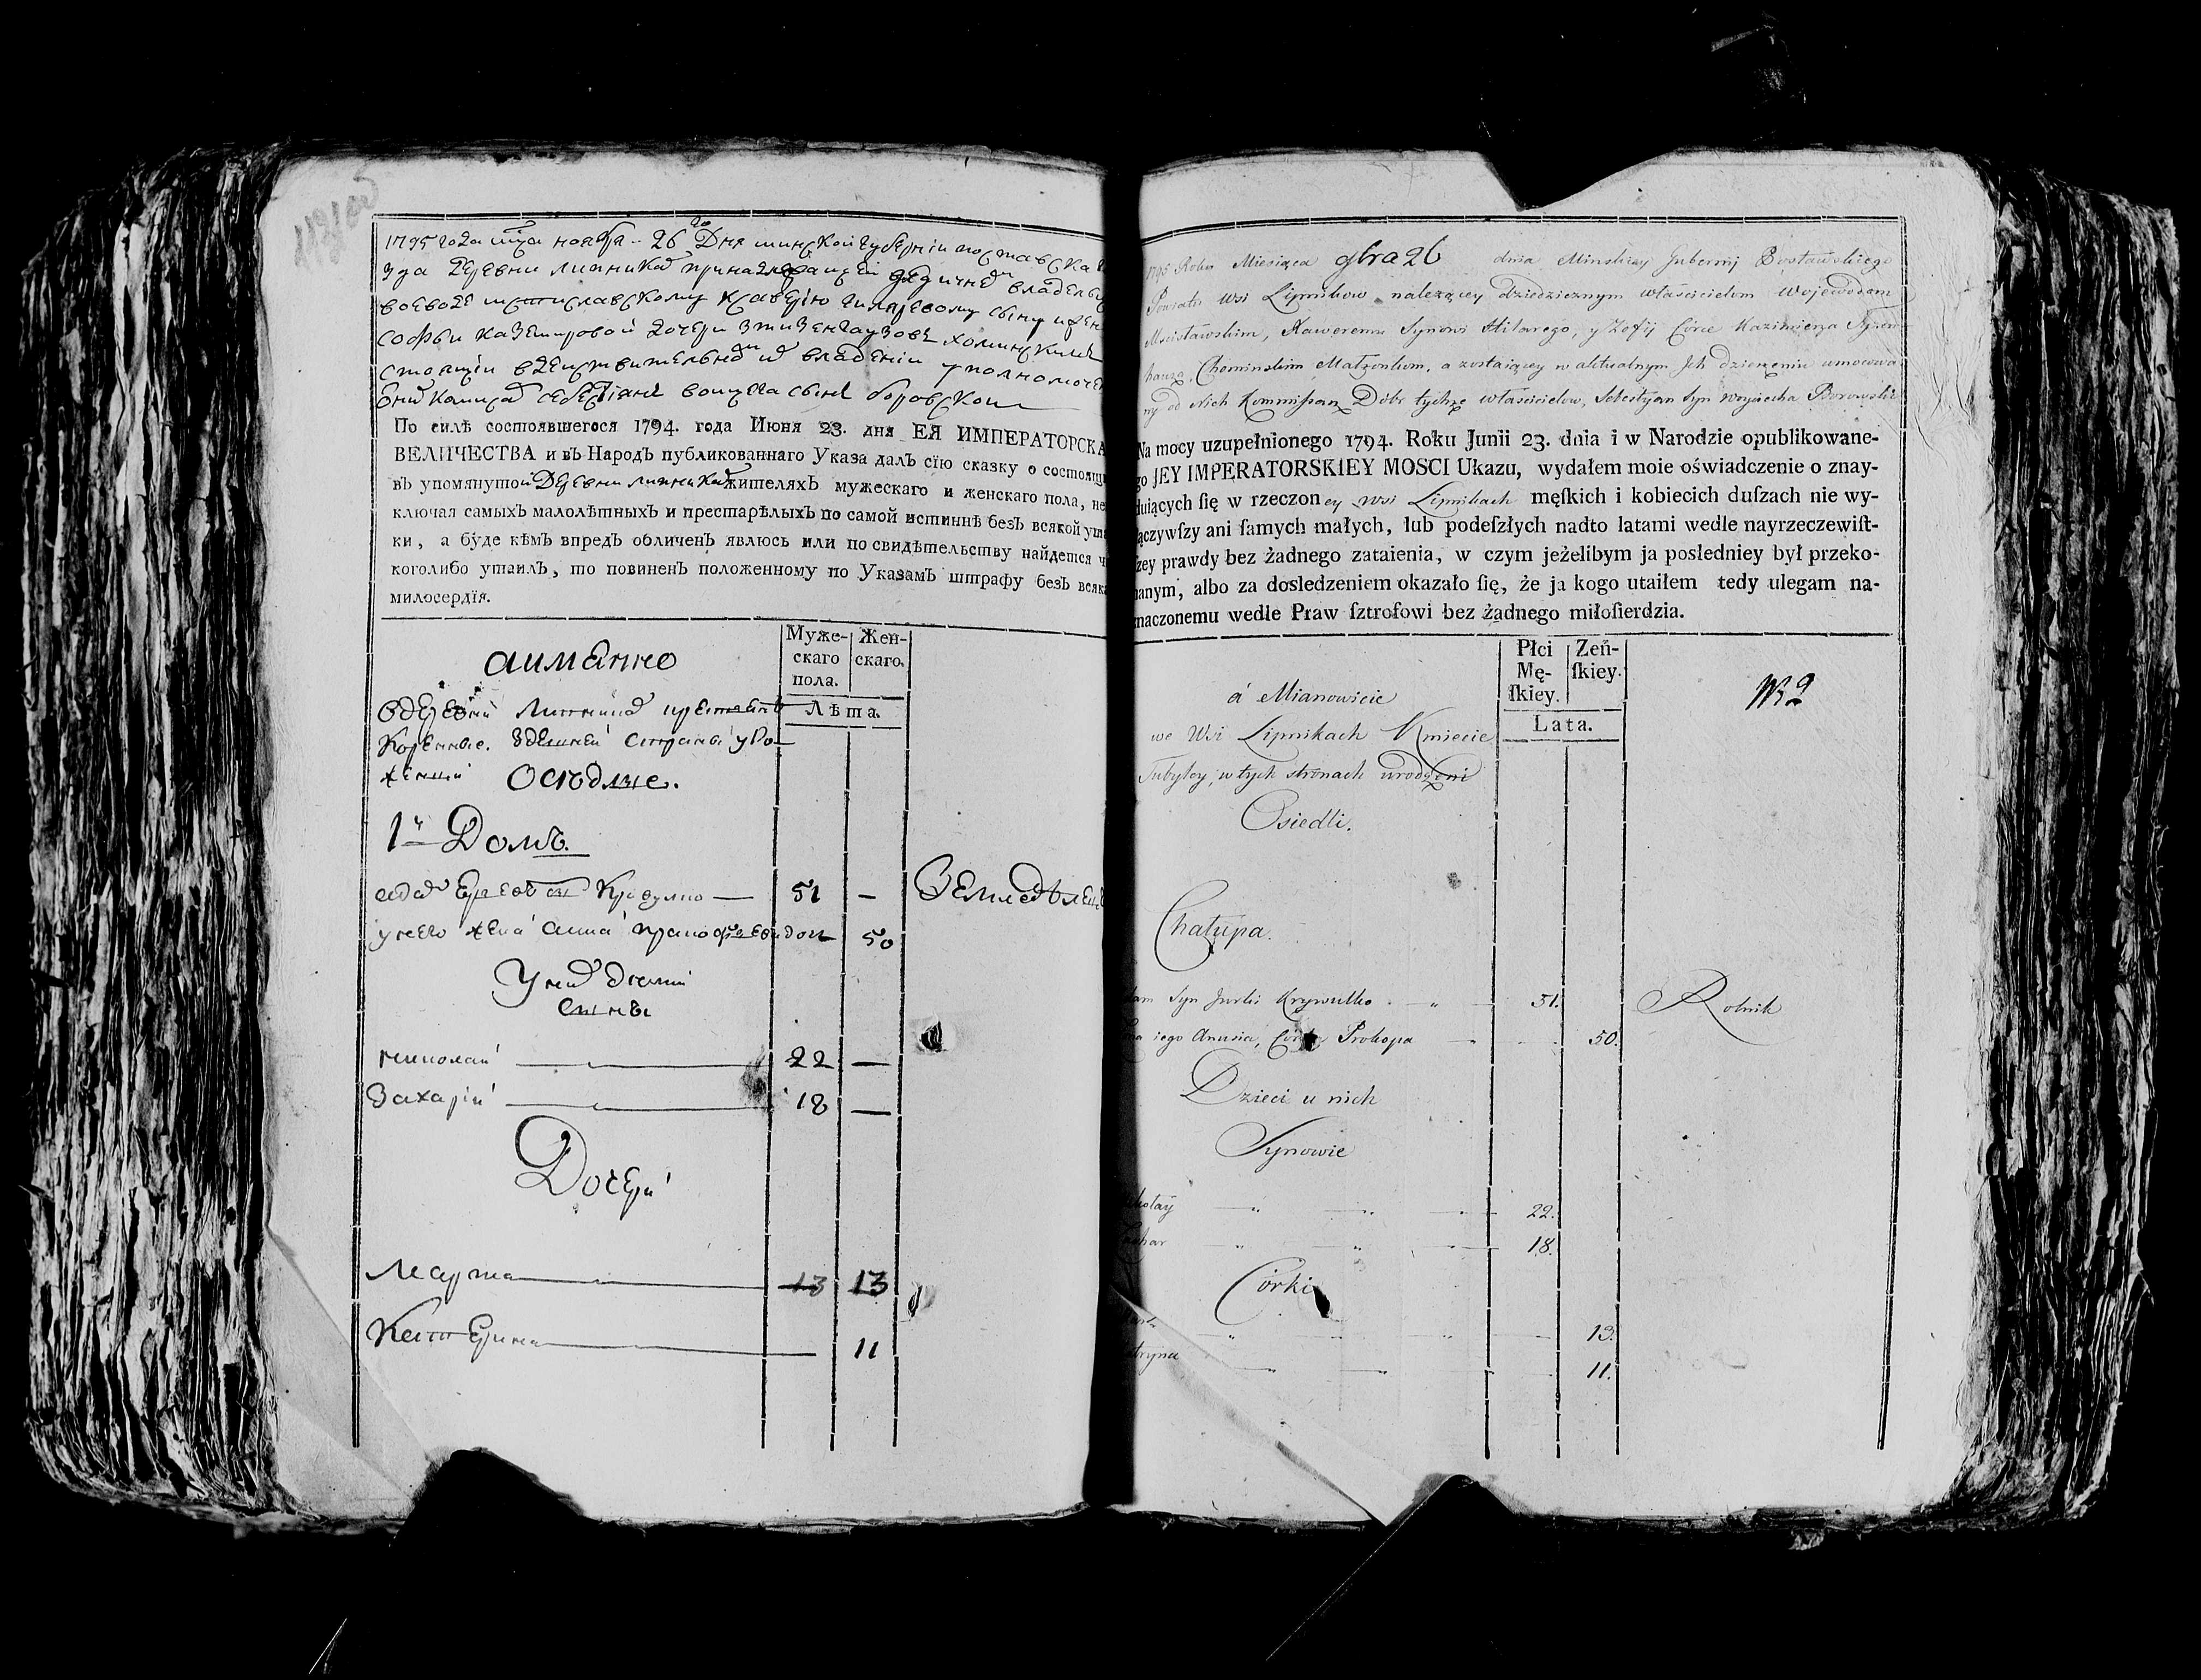 1795 года мца ноября 26 го Дня минской губерніи поставска
зда деревни липникахъ принадлежащей
воеводе мстиславскому сыну
софьи казеимировой дочери хоминскимъ
стоящіи въ владеніи уполномоче
воицеха сынъ боровскои
По силѣ состоявшегося 1794. года Іюня 23. дня ЕЯ ИМПЕРАТОРСКА
ВЕЛИЧЕСТВА и въ Народъ публикованнаго Указа далъ сїю сказку о состоящи
въ упомянутой Деревни липникахъ жителяхъ мужескаго и женскаго пола, не
ключая самыхъ малолѣтныхъ и престарѣлыхъ по самой истиннѣ безъ всякой ута
ки, а буде кѣмъ впредь обличенъ явлюсь или по свидѣтельству найдется ч
коголибо утаилъ, то повиненъ положенному по Указамъ штрафу безъ всяка
милосердїя.
аимянно
Муже-
скаго
пола.
Жен-
скаго.
Лѣта.
Коренные. здешней страны уро-
женцы Оседлые.
1й Домъ.
адамъ Кривулко — 51 —
Земледѣлец
у него жена анна 50
У нихъ дѣти
сыны
николай 22 —
Захарій 18 —
Дочери
Марта 13 13
Катерина 11
1795 Roku Miesiąca 9bra 26 dnia Minskiey Gubernij Postawskiego
Powiatu wsi Lipnikow należącey dziedzicznym właścicielom Wojewodom
Mscisławskim, Xaweremu Synowi Hilarego, y Zofij Córce Kazimierza Tyzen
hauza, Chominskim Małżonkom, a zostaiącey w aktualnym Ich dzierżeniu umocowa
ny od Nich Kommissarz Dobr tychże właścicielow, Sebestyan Syn Woyciecha Borowski
Na mocy uzupełnionego 1794. Roku Junii 23. dnia i w Narodzie opublikowane-
go JEY IMPERATORSKIEY MOSCI Ukazu, wydałem moie oświadczenie o znay-
duiących ſię w rzeczoney wsi Lipnikach męſkich i kobiecich duſzach nie wy-
ączywſzy ani ſamych małych, lub podeſzłych nadto latami wedle nayrzeczewiſt-
zey prawdy bez żadnego zataienia, w czym jeżelibym ja posledniey był przeko-
nanym, albo za dosledzeniem okazało ſię, że ja kogo utaiłem tedy ulegam na-
znaczonemu wedle Praw ſztrofowi bez żadnego miłoſierdzia.
Płci
Mę-
ſkiey.
Zeń-
ſkiey.
Lata.
á Mianowicie
N 2
we Wsi Lipnikach Kmiecie
Tubylcy, w tych stronach urodzeni
Osiedli.
Chałupa.
dam Syn Jurki Krywulko 51.
Rolnik
na iego Anusia, Córka Prokopa 50.
Dzieci u nich
Synowie
kołay 22.
char 18.
Córki
13.
tryna 11.